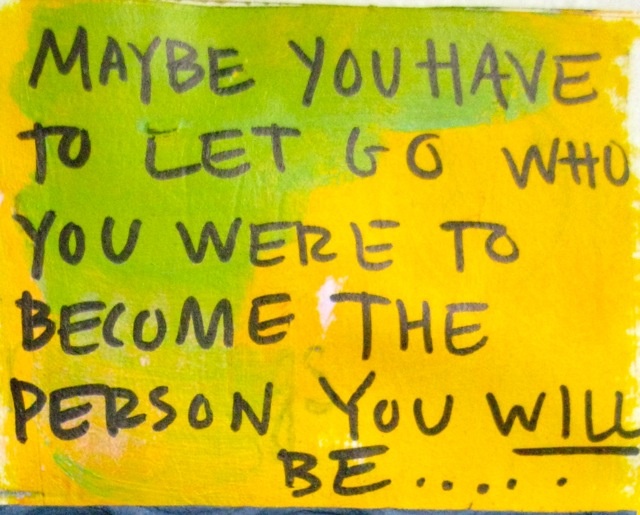 MAYBE YOU HAVE
TO LET GO WHO
YOU WERE TO
BECOME THE
PERSON YOU WILL
BE.....